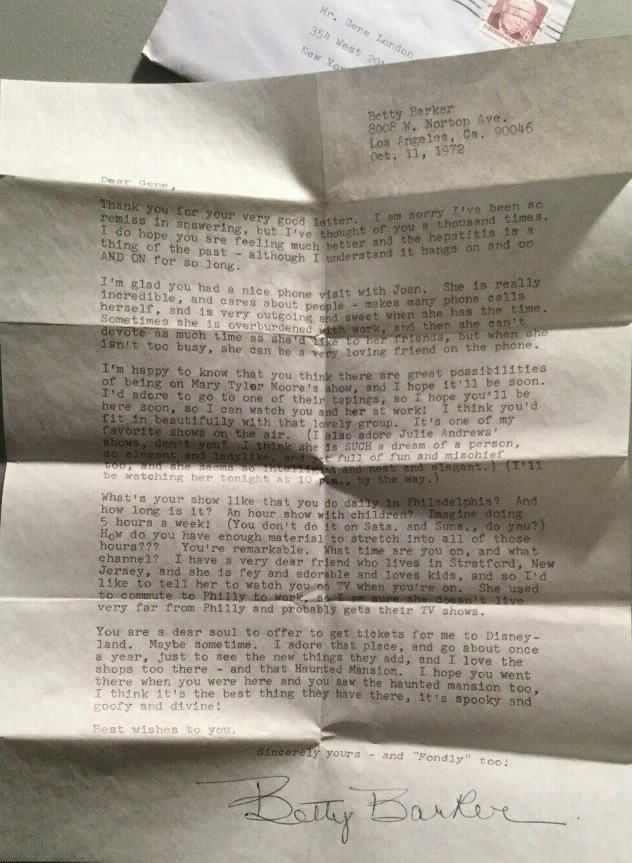 Mr. Gene London
354 West 20
New Yor
Betty Barker
8008 W. Norton Ave.
Los Angeles, Ca. 90046
Oct. 11, 1972
Dear Gene,
Thank you for your very good letter. I am sorry I've been so
remiss in answering, but I've thought of you a thousand times.
I do hope you are feeling much better and the hepatitis is a
thing of the past - although I understand it hangs on and on
AND ON for so long.
I'm glad you had a nice phone visit with Joan. She is really
incredible, and cares about people - makes many phone calls
herself, and is very outgoing and sweet when she has the time.
Sometimes she is overburdened with work, and then she can't
devote as much time as she'd like to her friends, but when she
isn't too busy, she can be a very loving friend on the phone.
I'm happy to know that you think there are great possibilities
of being on Mary Tyler Moore's show, and I hope it'll be soon.
I'd adore to go to one of their tapings, so I hope you'll be
here soon, so I can watch you and her at work! I think you'd
fit in beautifully with that lovely group. It's one of my
favorite shows on the air. (I also adore Julie Andrews'
shows, don't you? I think she is SUCH a dream of a person,
so elegant and ladylike, and yet full of fun and mischief
too, and she seems so intelligent and neat and elegant.) (I'll
be watching her tonight at 10 p.m., by the way.)
What's your show like that you do daily in Philadelphia? And
how long is it? An hour show with children? Imagine doing
5 hours a week! (You don't do it on Sats. and Suns., do you?)
How do you have enough material to stretch into all of those
hours??? You're remarkable. What time are you on, and what
channel? I have a very dear friend who lives in Stratford, New
Jersey, and she is fey and adorable and loves kids, and so I'd
like to tell her to watch you on TV when you're on. She used
to commute to Philly to work, so I am sure she doesn't live
very far from Philly and probably gets their TV shows.
You are a dear soul to offer to get tickets for me to Disney-
land. Maybe sometime. I adore that place, and go about once
a year, just to see the new things they add, and I love the
shops too there - and that Haunted Mansion. I hope you went
there when you were here and you saw the haunted mansion too,
I think it's the best thing they have there, it's spooky and
goofy and divine!
Best wishes to you.
Sincerely yours - and "Fondly" too!
Betty Barker